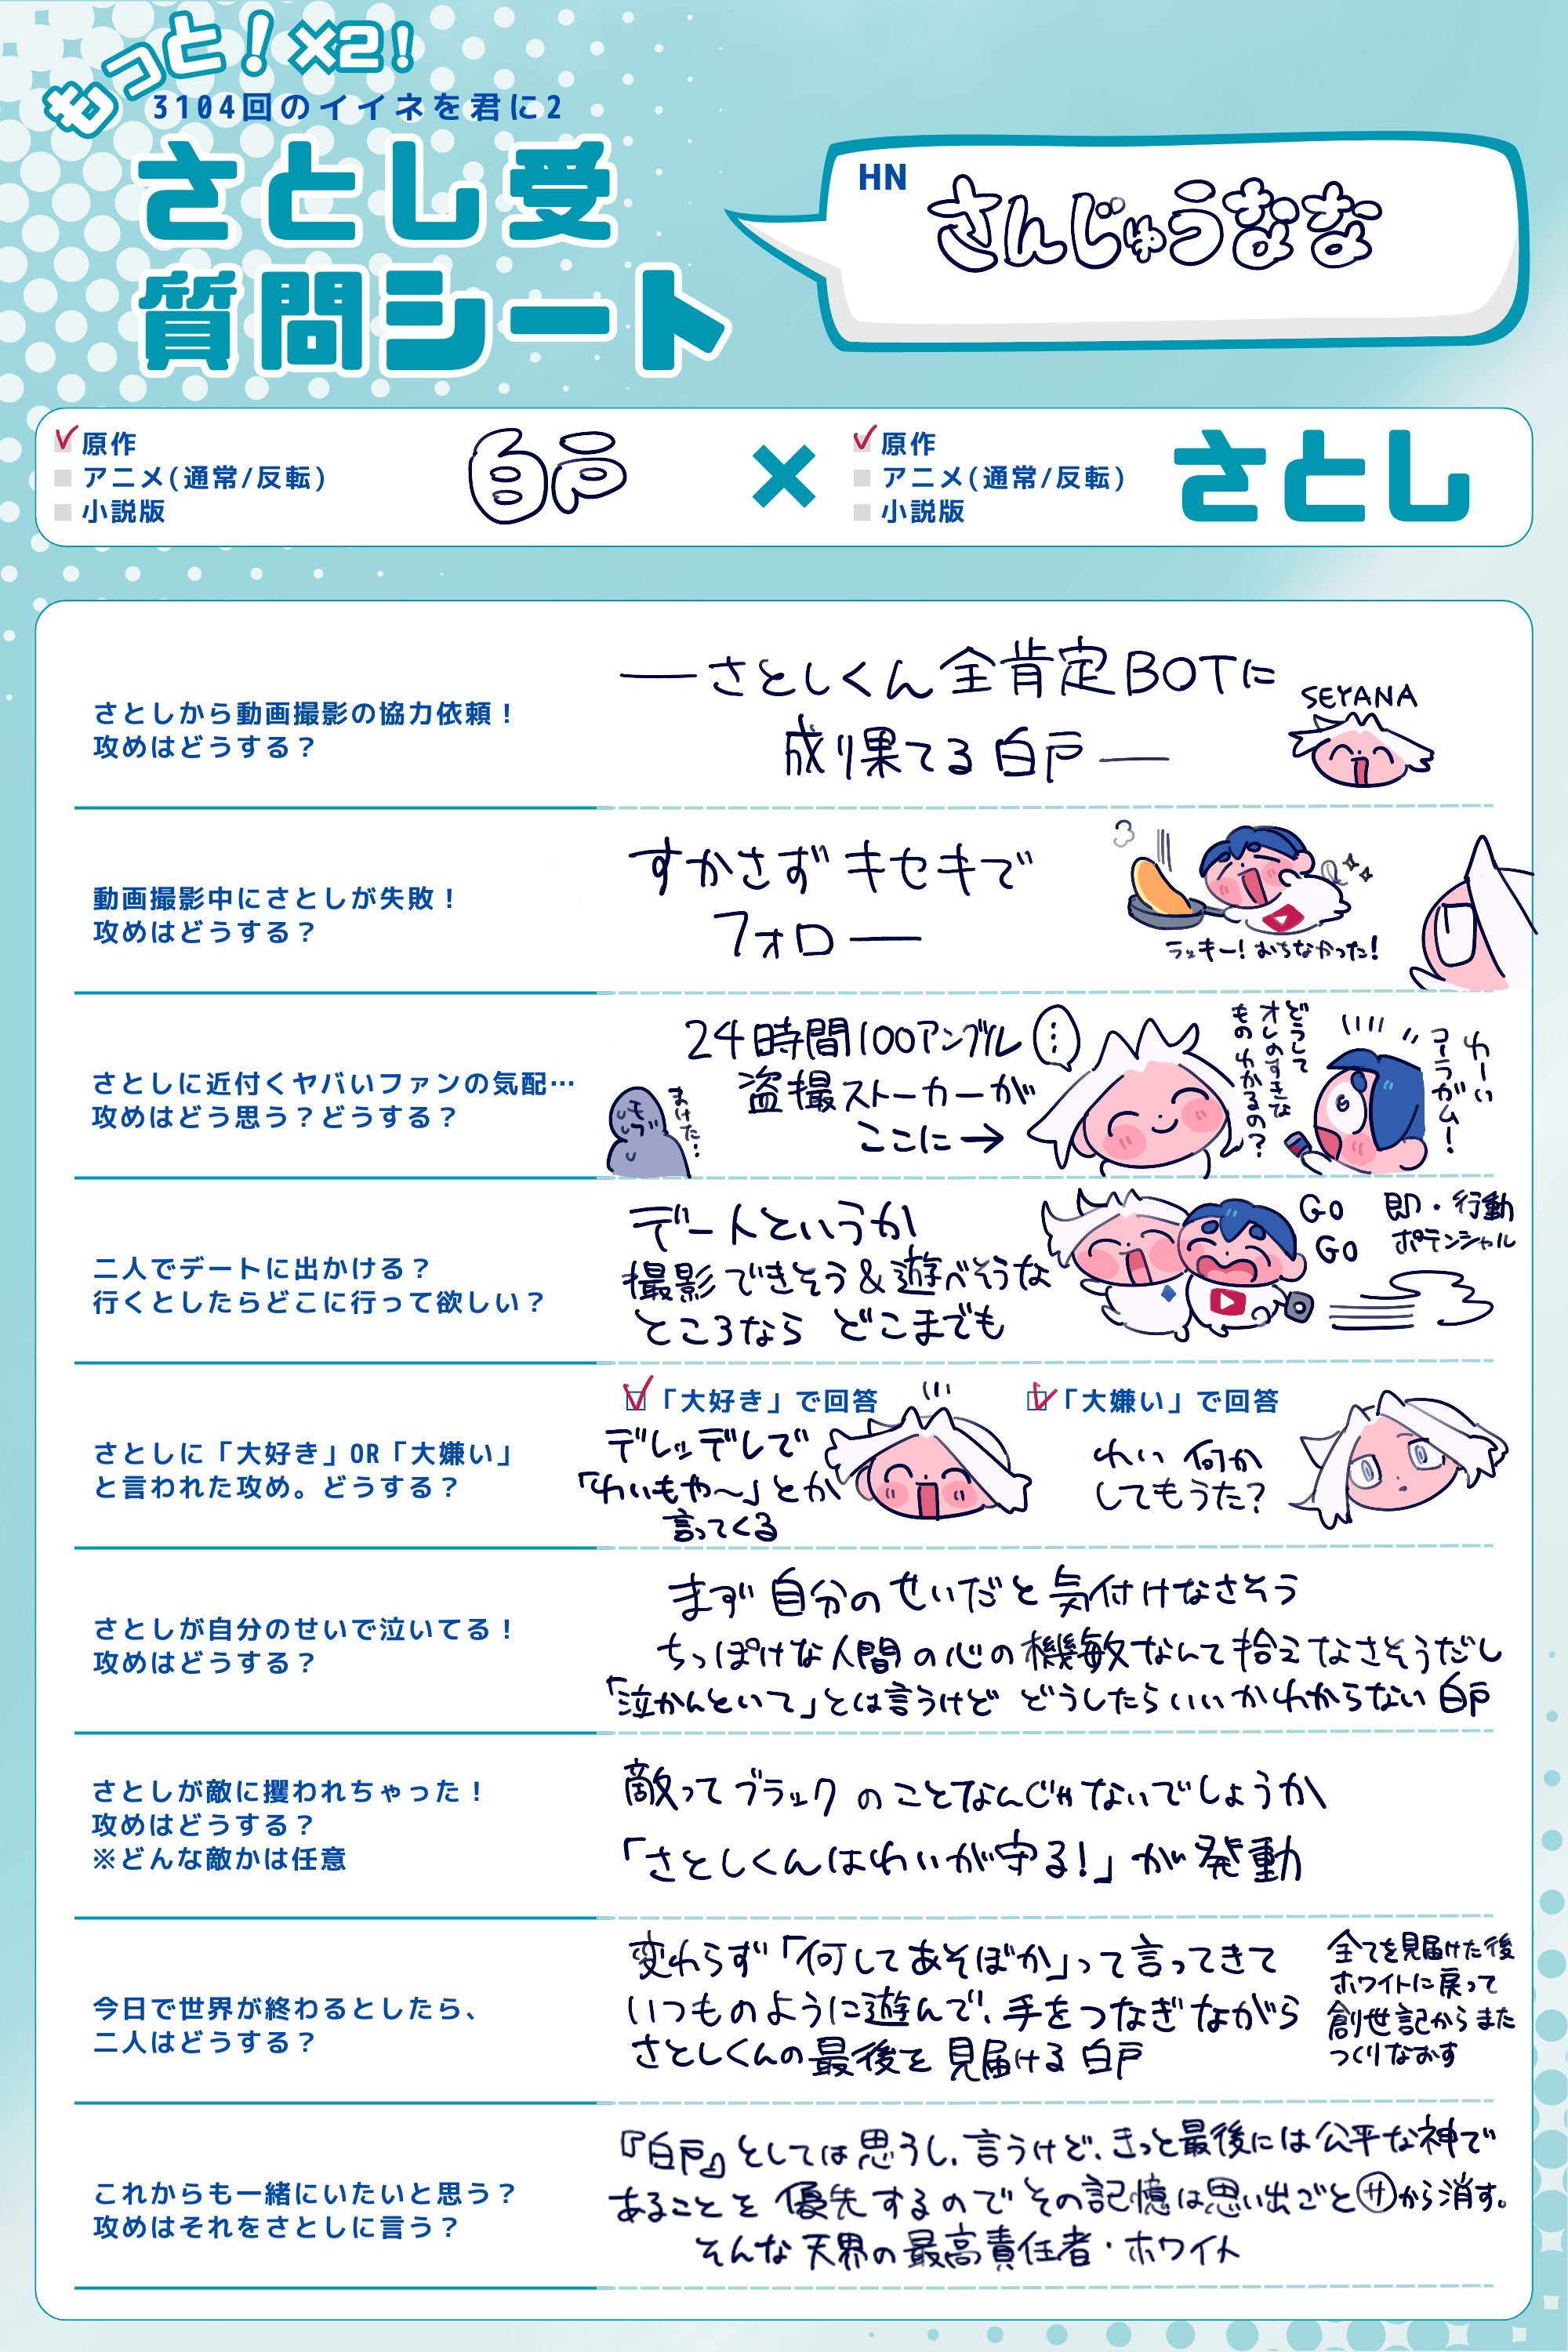 もっと！×2！
3104回のイイネを君に2
さとし受
質問シート
HN
さんじゅうなな
原作
アニメ(通常/反転)
小説版
白戸
×
原作
アニメ(通常/反転)
小説版
さとし
さとしから動画撮影の協力依頼！
攻めはどうする？
―さとしくん全肯定BOTに
成り果てる白戸―
SEYANA
動画撮影中にさとしが失敗！
攻めはどうする？
すかさずキセキで
フォロー
ラッキー！おちなかった！
さとしに近付くヤバいファンの気配…
攻めはどう思う？どうする？
24時間100アングル
盗撮ストーカーが
ここに→
モブ
まけた…
…
どうして
オレのすきな
ものわかるの？
わーい
コーラガム！
二人でデートに出かける？
行くとしたらどこに行って欲しい？
デートというか
撮影できそう&遊べそうな
ところなら どこまでも
GO
GO
即・行動
ポテンシャル
さとしに「大好き」OR「大嫌い」
と言われた攻め。どうする？
「大好き」で回答
デレッデレで
「わいもや～」とか
言ってくる
「大嫌い」で回答
わい 何か
してもうた？
さとしが自分のせいで泣いてる！
攻めはどうする？
まず自分のせいだと気付けなさそう
ちっぽけな人間の心の機敏なんて拾えなさそうだし
「泣かんといて」とは言うけど どうしたらいいかわからない白戸
さとしが敵に攫われちゃった！
攻めはどうする？
※どんな敵かは任意
敵ってブラックのことなんじゃないでしょうか
「さとしくんはわいが守る！」が発動
今日で世界が終わるとしたら、
二人はどうする？
変わらず「何してあそぼか」って言ってきて
いつものように遊んで、手をつなぎながら
さとしくんの最後を見届ける白戸
全てを見届けた後
ホワイトに戻って
創世記からまた
つくりなおす
これからも一緒にいたいと思う？
攻めはそれをさとしに言う？
『白戸』としては思うし、言うけど、きっと最後には公平な神で
あることを優先するのでその記憶は思い出ごと㋚から消す。
そんな天界の最高責任者・ホワイト